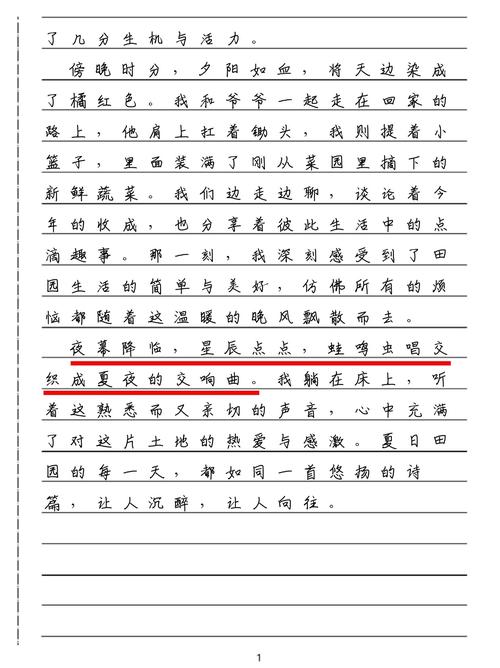 了几分生机与活力。
傍晚时分，夕阳如血，将天边染成
了橘红色。我和爷爷一起走在回家的
路上，他肩上扛着锄头，我则提着小
篮子，里面装满了刚从菜园里摘下的
新鲜蔬菜。我们边走边聊，谈论着今
年的收成，也分享着彼此生活中的点
滴趣事。那一刻，我深刻感受到了田
园生活的简单与美好，仿佛所有的烦
恼都随着这温暖的晚风飘散而去。
夜幕降临，星辰点点，蛙鸣虫唱交
织成夏夜的交响曲。我躺在床上，听
着这熟悉而又亲切的声音，心中充满
了对这片土地的热爱与感激。夏日田
园的每一天，都如同一首悠扬的诗
篇，让人沉醉，让人向往。
1